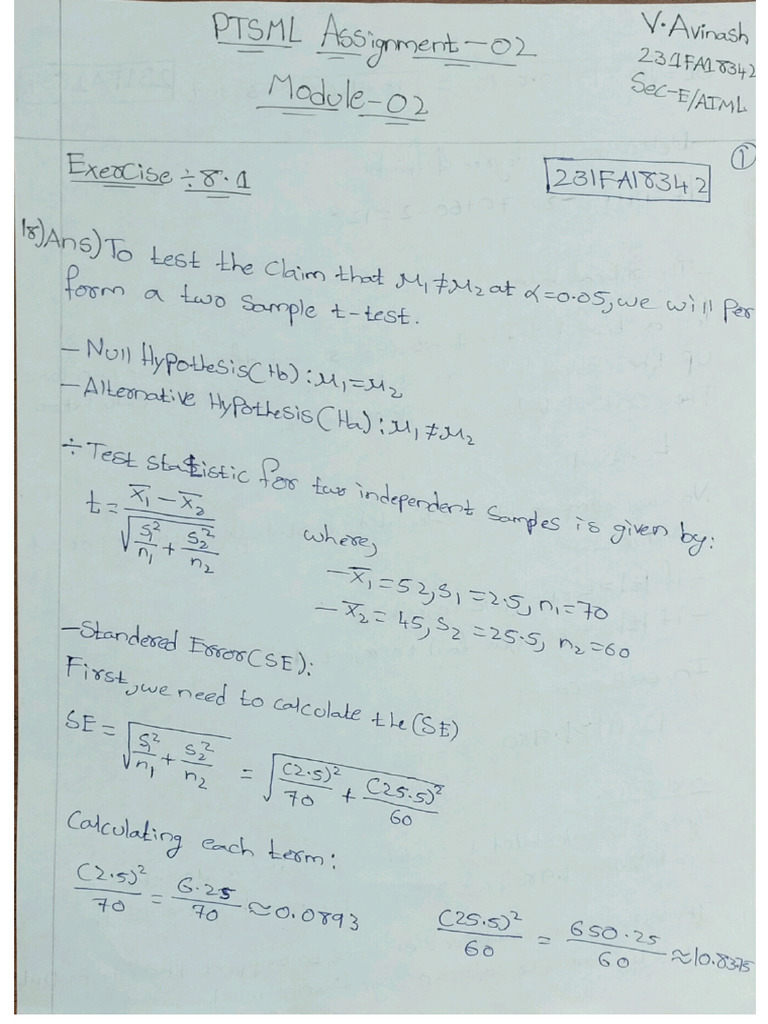 PTSML Assignment-02
Module-02
V.Avinash
231FA18342
Sec-E/AIML
①
Exercise ÷ 8.1
231FA18342
18)Ans) To test the claim that μ₁≠μ₂ at α=0.05, we will per
form a two sample t-test.
- Null Hypothesis(H0): μ₁=μ₂
- Alternative Hypothesis(Ha): μ₁≠μ₂
÷ Test statistic for two independent samples is given by:
t = (x̄₁ - x̄₂) / √(s₁²/n₁ + s₂²/n₂)
where,
- x̄₁ = 52, s₁ = 2.5, n₁ = 70
- x̄₂ = 45, s₂ = 25.5, n₂ = 60
- Standered Error(SE):
First, we need to calculate the (SE)
SE = √(s₁²/n₁ + s₂²/n₂) = √((2.5)²/70 + (25.5)²/60)
Calculating each term:
(2.5)²/70 = 6.25/70 ≈ 0.0893 (25.5)²/60 = 650.25/60 ≈ 10.8375